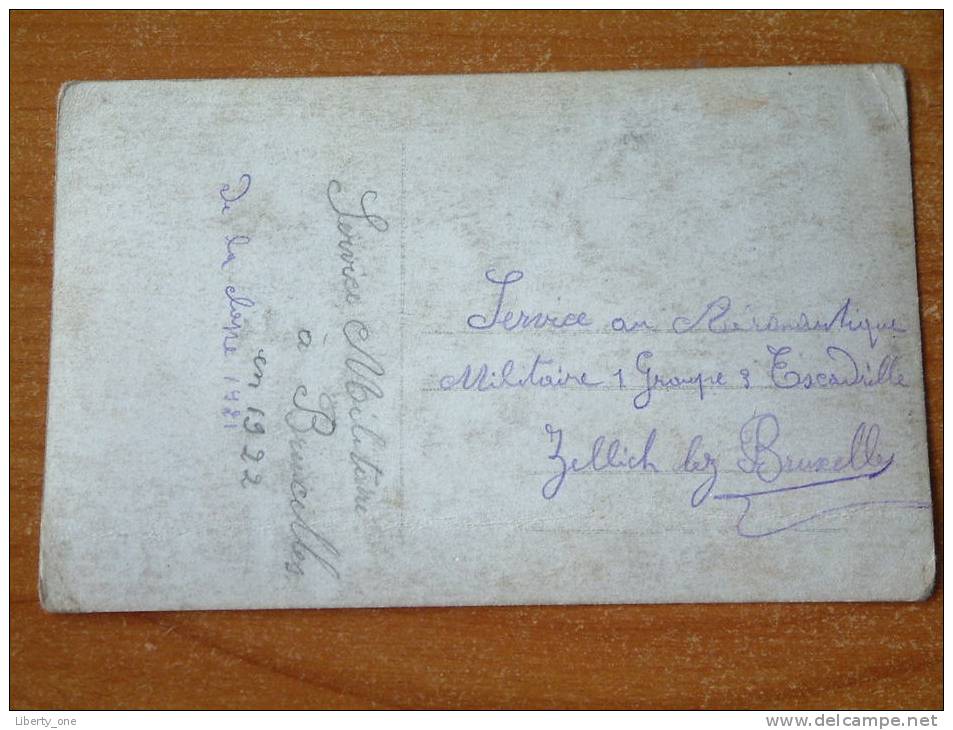 Service Militaire
à Bruxelles
en 1922
De la classe 1921
Service au Aéronautique
Militaire 1 Groupe 3 Escadrille
Zellich lez Bruxelles
Liberty_one
www.delcampe.net